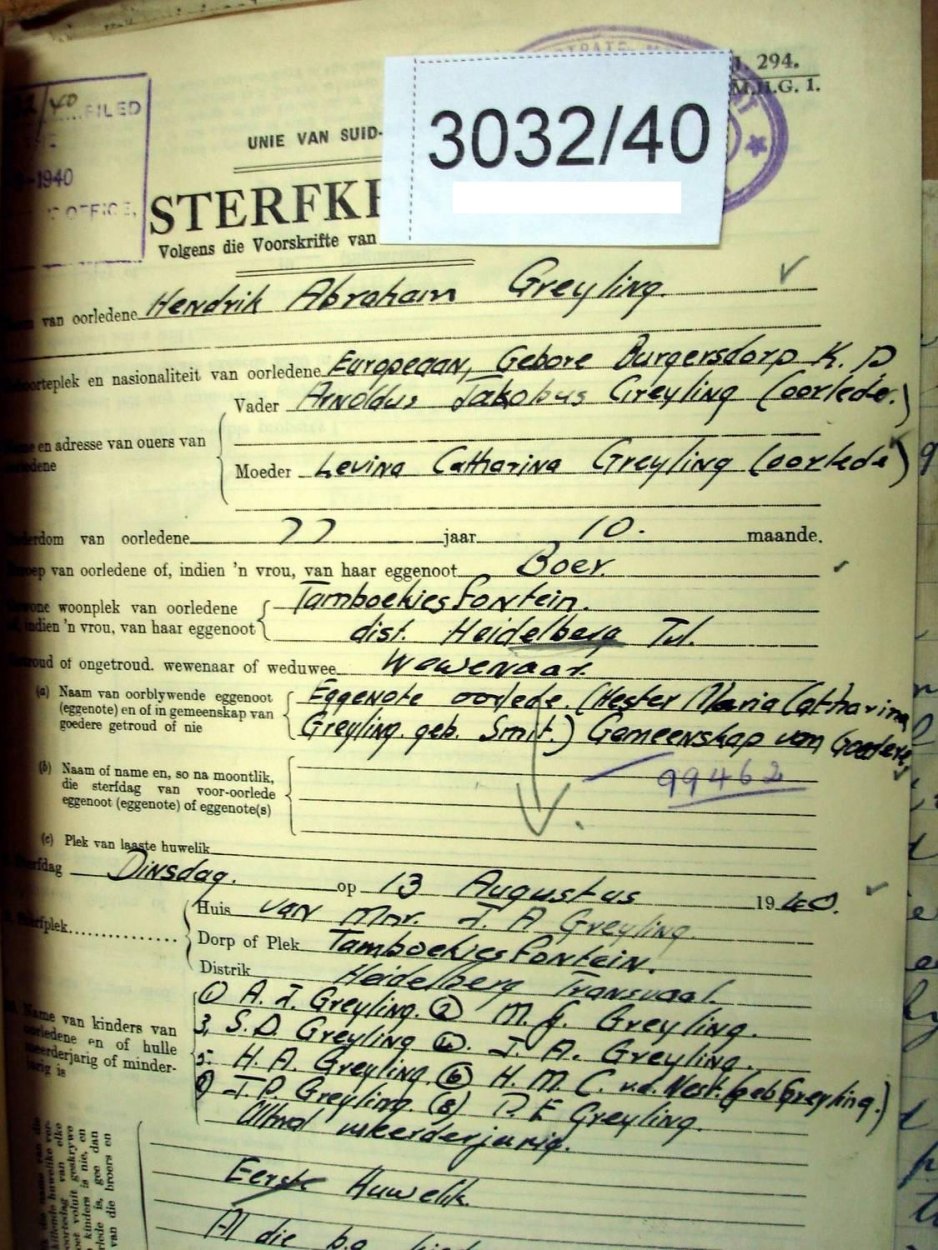 3032/40
294.
M.H.G. 1.
FILED
1940
OFFICE,
UNIE VAN SUID-
STERFK
Volgens die Voorskrifte van
van oorledene Hendrik Abraham Greyling.
en nasionaliteit van oorledene Europeaan, Gebore Burgersdorp K. P
Vader Arnoldus Jakobus Greyling (oorlede.)
en adresse van ouers van
Moeder Levina Catharina Greyling (oorlede)
van oorledene 77 jaar 10. maande.
van oorledene of, indien 'n vrou, van haar eggenoot Boer.
woonplek van oorledene Tamboekiesfontein.
indien 'n vrou, van haar eggenoot dist. Heidelberg Tvl.
of ongetroud. wewenaar of weduwee Wewenaar.
(a) Naam van oorblywende eggenoot Eggenote oorlede (Hester Maria Catharina
(eggenote) en of in gemeenskap van
goedere getroud of nie Greyling geb. Smit.) Gemeenskap van Goedere
(b) Naam of name en, so na moontlik,
die sterfdag van voor-oorlede
eggenoot (eggenote) of eggenote(s)
99462
(c) Plek van laaste huwelik
Dinsdag. op 13 Augustus 1940.
Huis van Mnr. J. A Greyling.
Dorp of Plek Tamboekiesfontein.
Distrik Heidelberg Transvaal.
Name van kinders van (1) A. J. Greyling. (2) M. J. Greyling.
en of hulle 3, S. D. Greyling (4). J. A. Greyling.
of minder- 5: H. A. Greyling. (6) H. M. C. v.d. Nest. (geb Greyling.)
J. P. Greyling. (8) P. E Greyling.
Almal meerderjarig.
Eerste Huwelik.
Al die